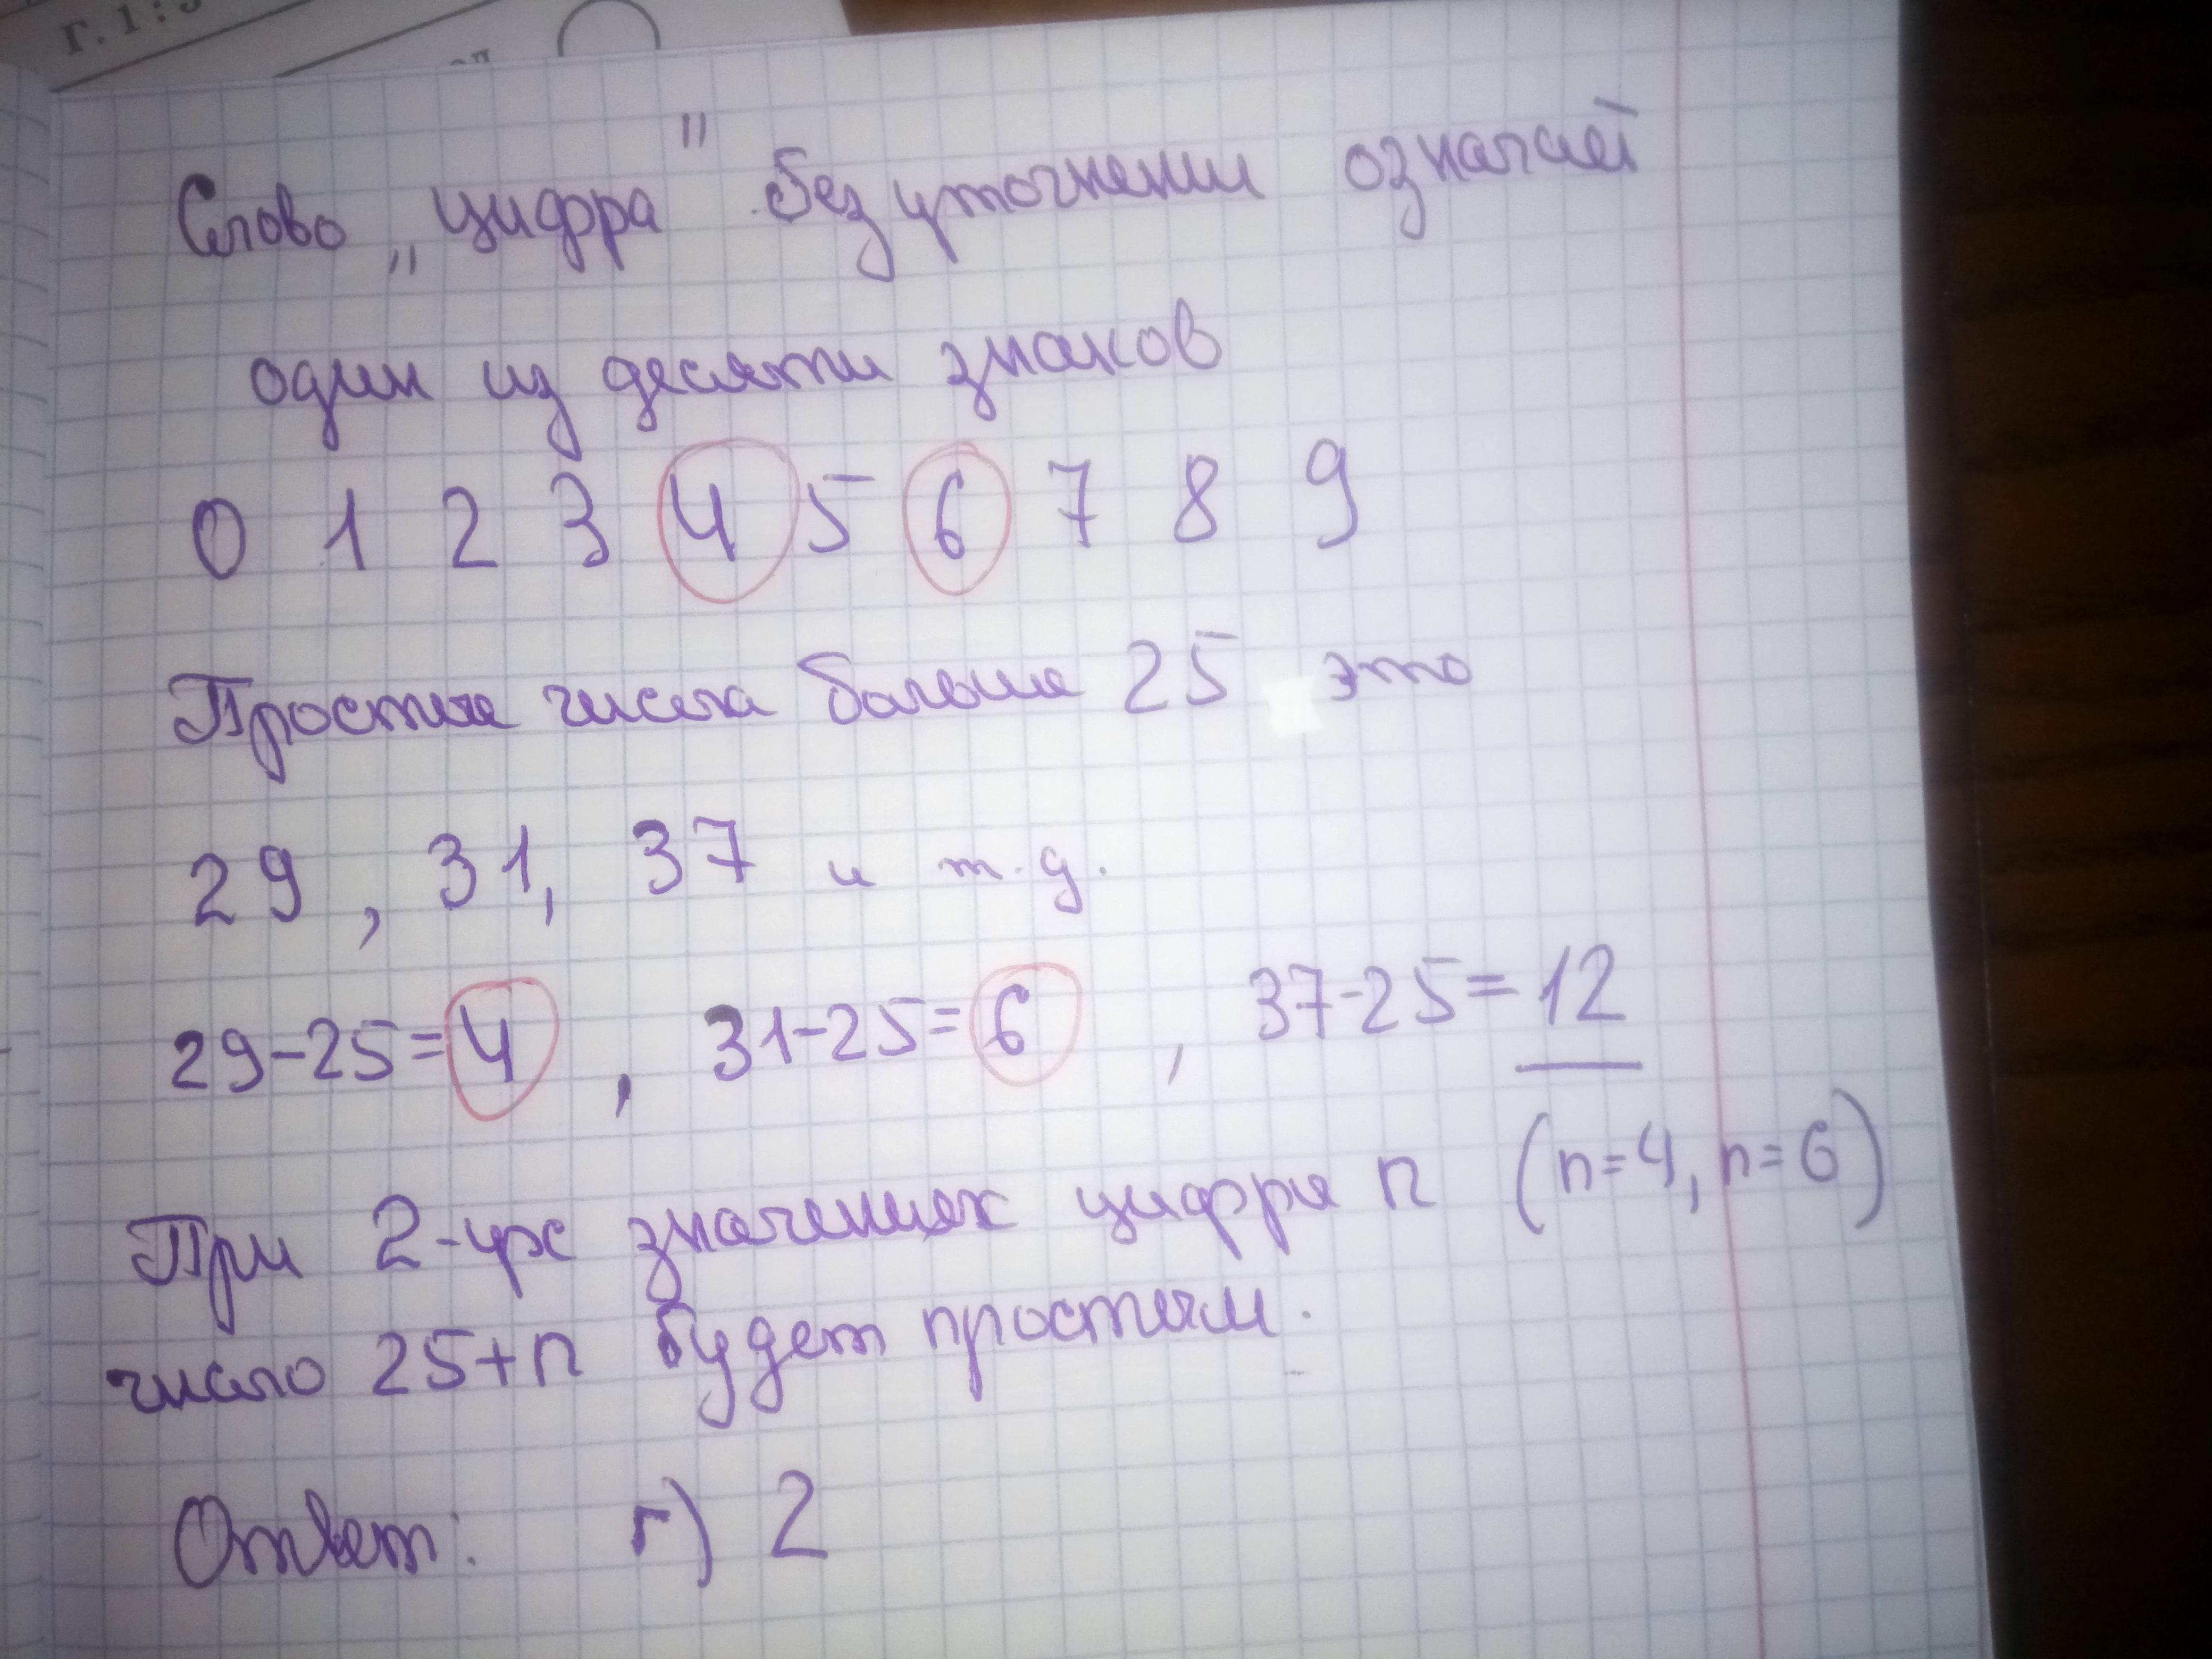 Г. 1 : 3
Слово „цифра" без уточнении означает
один из десяти знаков
0 1 2 3 4 5 6 7 8 9
Простые числа больше 25 это
29, 31, 37 и т.д.
29-25=4, 31-25=6, 37-25=12
При 2-ух значениях цифры n (n=4, n=6)
число 25+n будет простым.
Ответ: г) 2